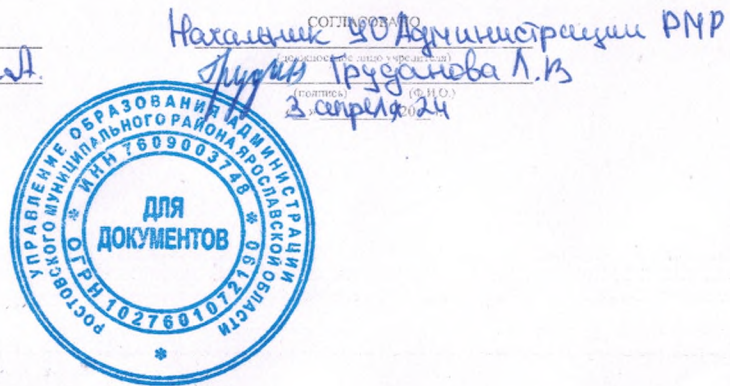 СОГЛАСОВАНО
Начальник УО Администрации РМР
(должностное лицо учредителя)
.А.
Груданова Л.В
(подпись) (Ф.И.О.)
3 апреля 2024
УПРАВЛЕНИЕ ОБРАЗОВАНИЯ АДМИНИСТРАЦИИ
РОСТОВСКОГО МУНИЦИПАЛЬНОГО РАЙОНА ЯРОСЛАВСКОЙ ОБЛАСТИ
* ИНН 7609003748 * ОГРН 1027601072190
ДЛЯ
ДОКУМЕНТОВ
*